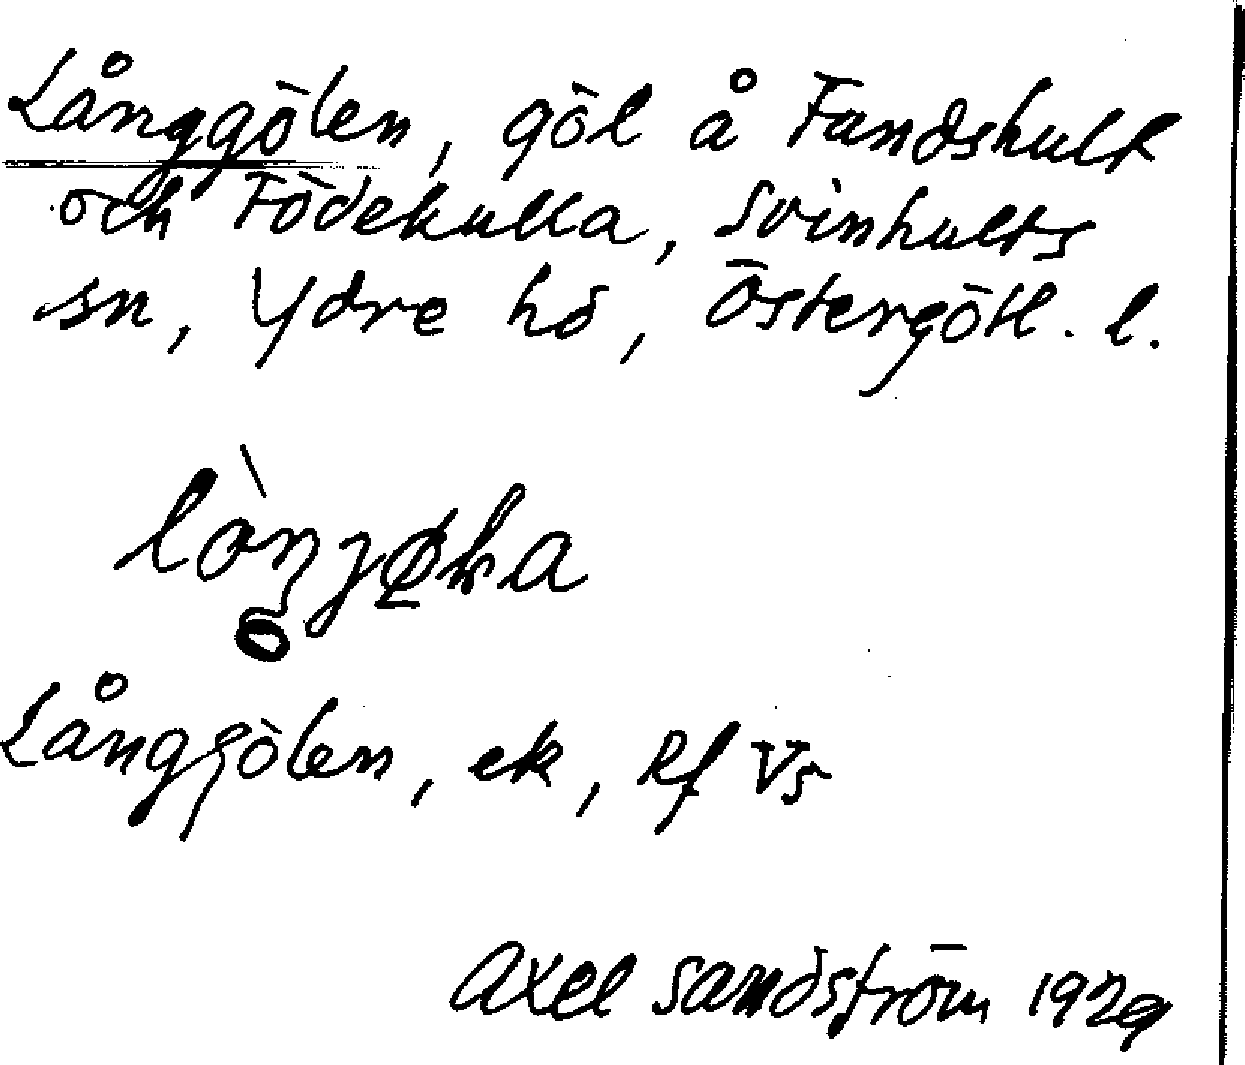 Långgölen, göl å Fandshult
och Födekulla, Svinhults
sn, Ydre hd, Östergötl. l.
Långgölen, ek, Rf Vs
Axel Sandström 1929